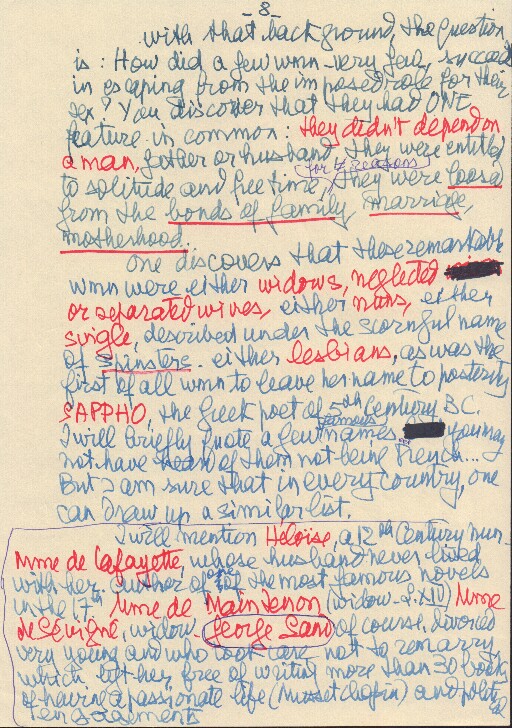 - 8 -
with that background, the question
is: How did a few wmn-very few, succeed
in escaping from the imposed role for their
sex? You discover that they had ONE
feature in common: they didn't depend on
a man, father or husband. They were entitled
for 4 reasons
to solitude and free time, they were loose
from the bonds of family, marriage,
motherhood.
One discovers that these remarkable
wmn were either widows, neglected
or separated wives, either nuns, either
single, described under the scornful name
of spinsters. either lesbians, as was the
first of all wmn to leave her name to posterity
SAPPHO, the greek poet of 5th Century B.C.
famous
I will briefly quote a few names you may
not have heard of them not being French...
But I am sure that in every country, one
can draw up a similar list.
I will mention Heloïse, a 12th Century nun-
Mme de Lafayette, whose husband never lived
with her, author of one of the most famous novels
in the 17th, Mme de Maintenon widow L.XIV Mme
de Sévigné, widow. George Sand of course, divorced
very young and who took care not to remarry,
which left her free of writing more than 30 books
of having a passionate life (Musset chopin) and political
engagements